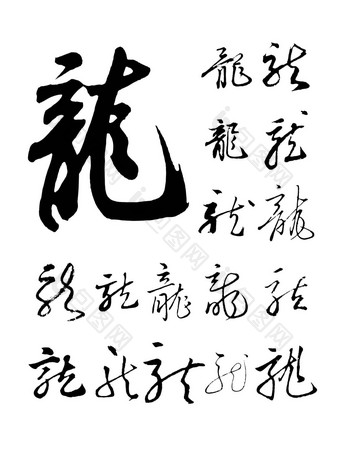 龍
龍 龍
龍 龍
龍 龍
龍 龍 龍 龍 龍
龍 龍 龍 龍 龍
包图网